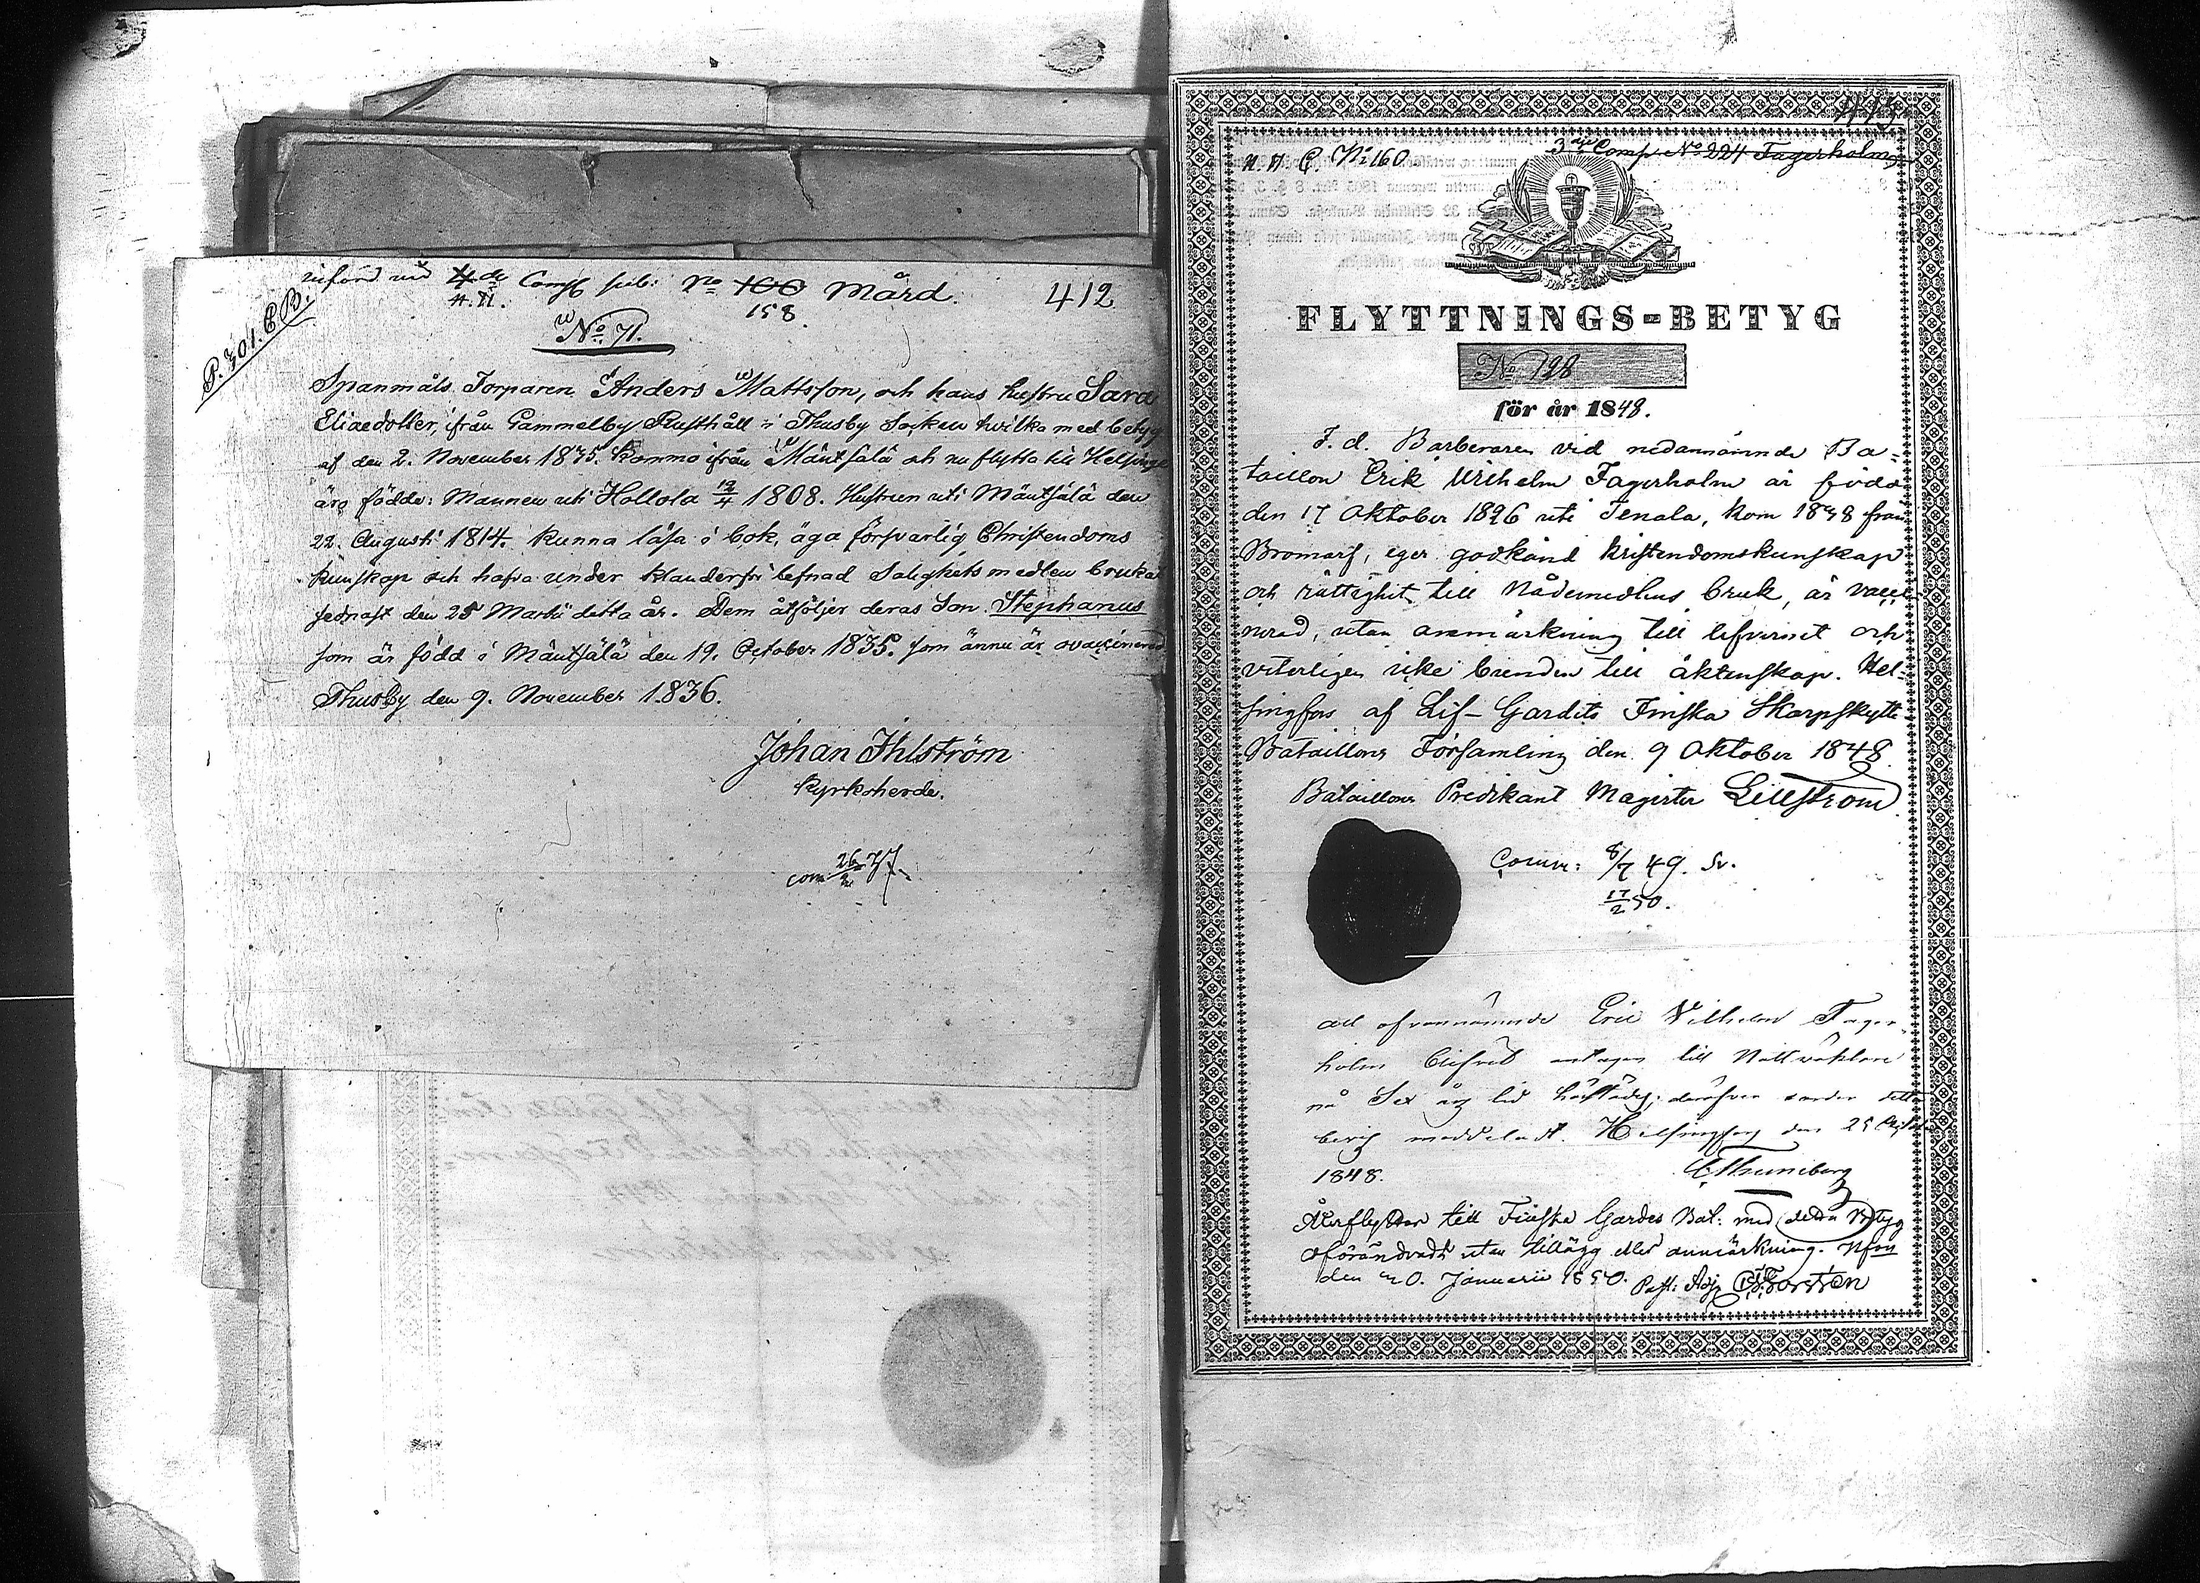 införd vid 4de Comp sub: No 100 Mård. 412
H.N. 158.
P. 301. C.B.
No 71.
Spanmåls Torparen Anders Mattsson, och hans hustru Sara
Eliaedotter, ifrån Gammelby Rusthåll i Thusby Socken hvilka med betyg
af den 2. November 1835. kommo ifrån Mäntsälä och nu flytta till Helsinge
äro födde: Mannen uti Hollola 12/4 1808. Hustrun uti Mäntsälä den
22. Augusti 1814. kunna läsa i bok, äga försvarlig Christendoms
kunskap och hafva under klanderfri lefnad Salighets medlen brukat
sednast den 25 Martii detta år. Dem åtföljer deras Son Stephanus
som är född i Mäntsälä den 19. October 1835. som ännu är ovaccinerad.
Thusby den 9. November 1836.
Johan Ihlström
Kyrkoherde.
com 26/2 37.
413
N. N. C. No 160
3dje Comp No 224 Fagerholm
FLYTTNINGS-BETYG
No 128
för år 1848.
F. d. Barberaren vid nedannämnde Ba-
taillon Erik Wilhelm Fagerholm är född
den 17 Oktober 1826 uti Tenala, kom 1838 från
Bromarf, eger godkänd kristendomskunskap
och rättighet till Nådemedlens bruk, är vacci-
nerad, utan anmärkning till lefvernet och
veterligen icke bunden till äktenskap. Hel-
singfors af Lif-Gardets Finska Skarpskytte-
Bataillons Församling den 9 Oktober 1848.
Bataillons Predikant Magister Lillström
Comm: 8/7 49. Sv.
17/2 50.
Att ofvannämnde Eric Vilhelm Fager-
holm blifvit antagen till Nattväktare
på Sex års tid härstädes; deröfver varder detta
bevis meddeladt. Helsingfors den 25
1848. Thuneberg
Återflyttar till Finska Gardes Bat: med detta Betyg
oförändradt utan tillägg eller anmärkning. Hfors
den 20. Januarii 1850. Past: Adj Forstén